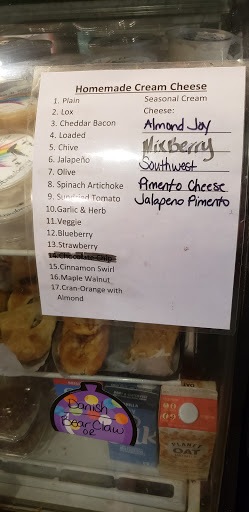 Homemade Cream Cheese
1. Plain
2. Lox
3. Cheddar Bacon
4. Loaded
5. Chive
6. Jalapeño
7. Olive
8. Spinach Artichoke
9. Sundried Tomato
10.Garlic & Herb
11.Veggie
12.Blueberry
13.Strawberry
14.Chocolate Chip
15.Cinnamon Swirl
16.Maple Walnut
17.Cran-Orange with
Almond
Seasonal Cream
Cheese:
Almond Joy
MixBerry
Southwest
Pimento Cheese
Jalapeno Pimento
Danish
OR
Bear Claw
PLANET
OAT